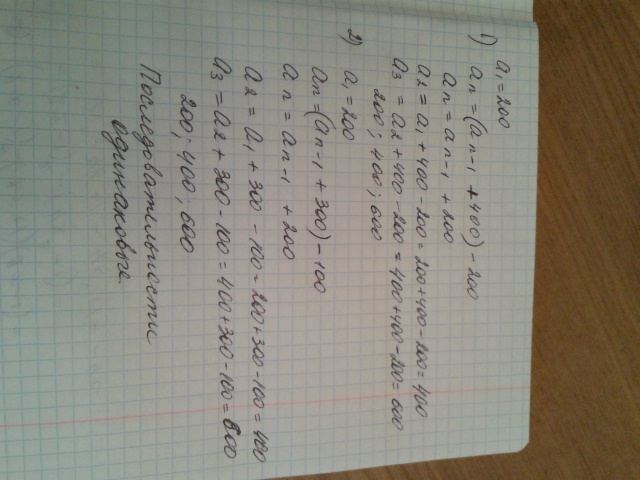 a₁ = 200
1) aₙ = (aₙ₋₁ + 400) - 200
aₙ = aₙ₋₁ + 200
a₂ = a₁ + 400 - 200 = 200 + 400 - 200 = 400
a₃ = a₂ + 400 - 200 = 400 + 400 - 200 = 600
200; 400; 600
2) a₁ = 200
aₙ = (aₙ₋₁ + 300) - 100
aₙ = aₙ₋₁ + 200
a₂ = a₁ + 300 - 100 = 200 + 300 - 100 = 400
a₃ = a₂ + 300 - 100 = 400 + 300 - 100 = 600
200; 400; 600
Последовательности
одинаковые.